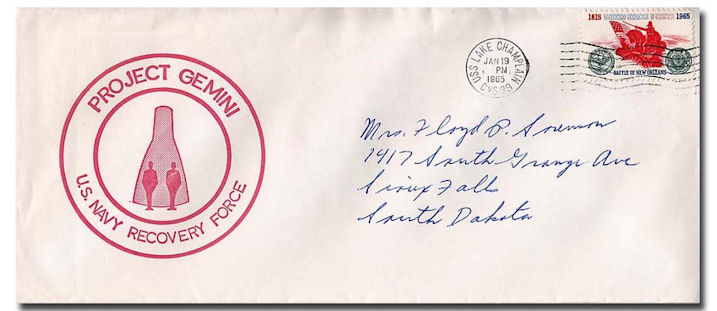 PROJECT GEMINI
U.S. NAVY RECOVERY FORCE
USS LAKE CHAMPLAIN
JAN 19
PM
1965
CVS 39
1815 1965
BATTLE OF NEW ORLEANS
Mrs. Floyd P. Sorenson
1417 South Grange Ave
Sioux Falls
South Dakota